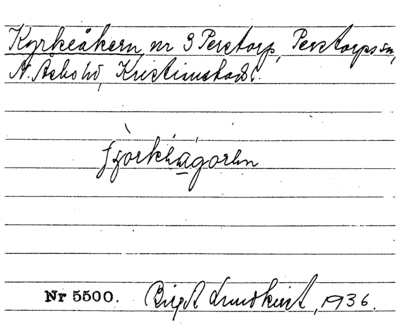 Kyrkeåkern nr 3 Perstorp, Perstorps sn,
N. Åsbo hd, Kristianstads l.
Nr 5500. Birgit Lundkvist, 1936.